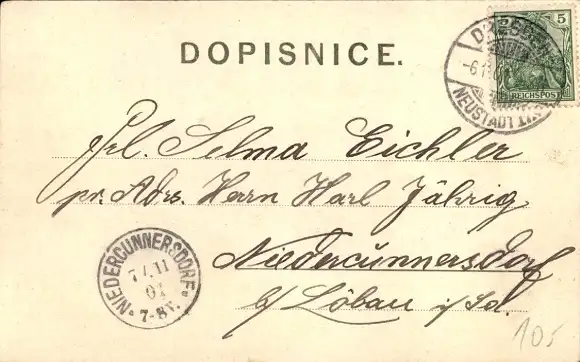 DOPISNICE.
5
REICHSPOST
DRESDEN
-6.11
NEUSTADT
Frl. Selma Eichler
pr. Adrs. Herrn Karl Jährig
Niedercunnersdorf
b/ Löbau i/Sa.
NIEDERCUNNERSDORF
7/.11
01
7-8V.
105